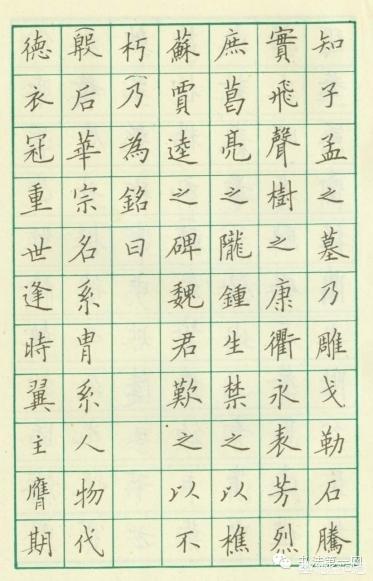 知子孟之墓乃雕戈勒石騰
實飛聲樹之康衢永表芳烈
庶葛亮之隴鍾生禁之以樵
蘇賈逵之碑魏君歎之以不
朽(乃為銘曰
(殷后華宗名系胄系人物代
德衣冠重世逢時翼主膺期